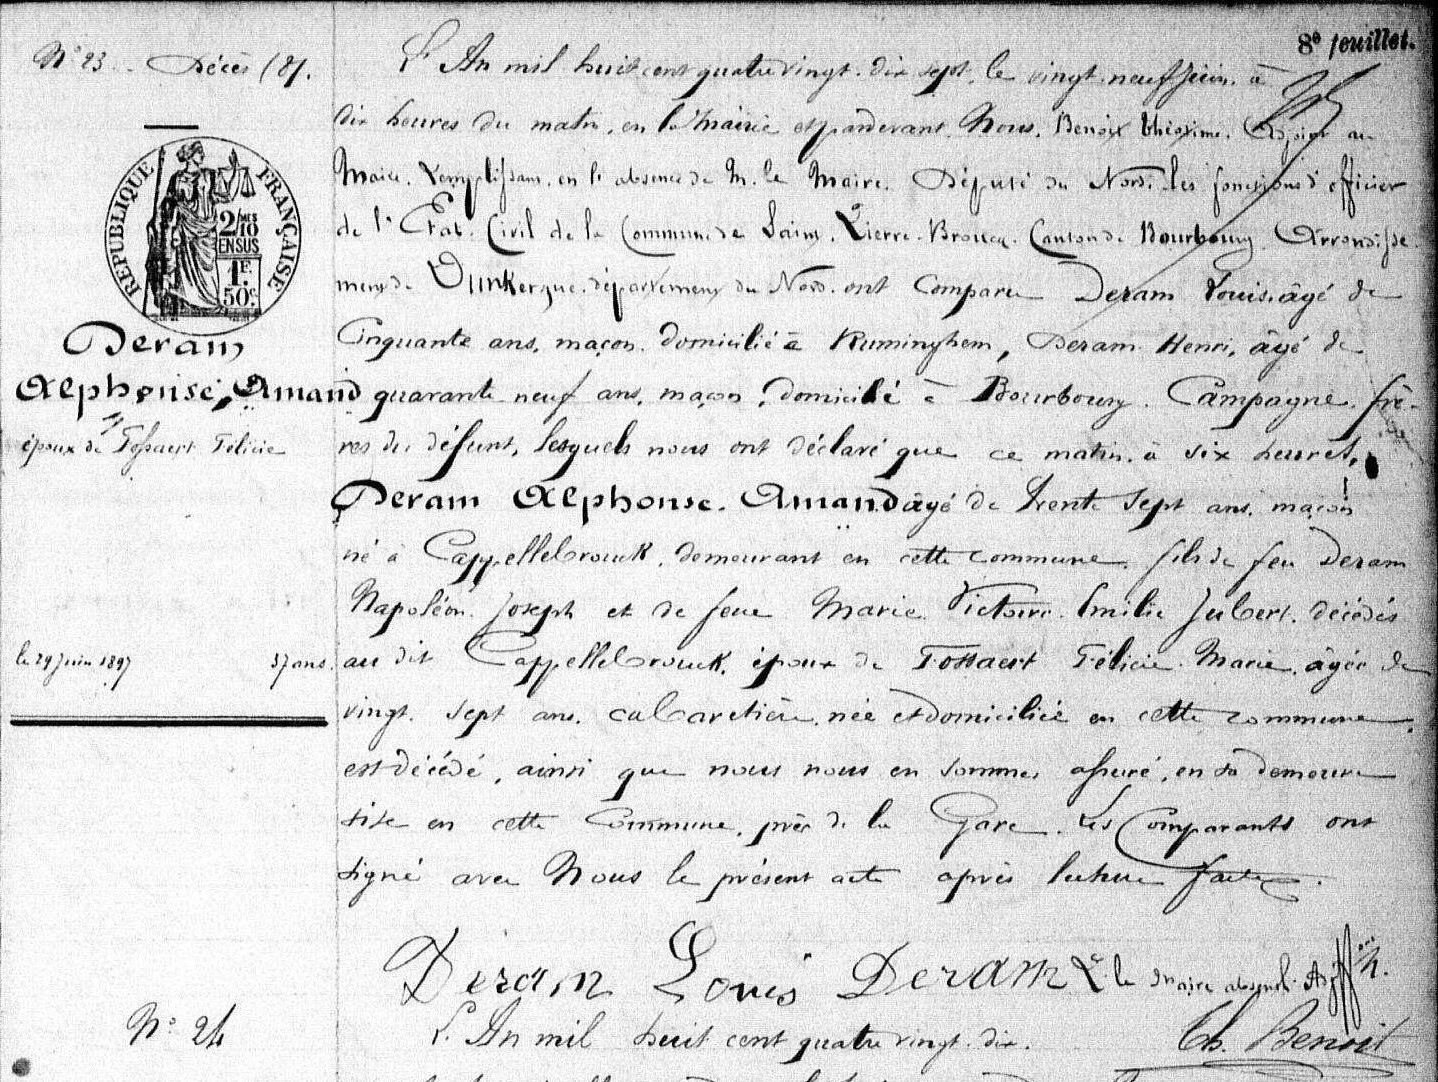 8e feuillet.
N° 23 . Décès (8).
L'An mil huit cent quatre vingt. dix sept, le vingt neuf Juin. à
dix heures du matin, en la Mairie et pardevant, Nous. Benoit Théotime. Adjoint au
Maire. Remplissant. en l'absence de M. le Maire. Député du Nord. les fonctions d'officier
de l'Etat. Civil de la Commune de Saint. Pierre-Brouck. Canton de Bourbourg. Arrondisse
ment de Dunkerque. département du Nord. ont Comparu Deram Louis. âgé de
REPUBLIQUE FRANÇAISE
2/10 MES
EN SUS
1F.
50c.
Cinquante ans, maçon. domicilié à Ruminghem, Deram Henri, âgé de
Deram
Alphonse, Amand
quarante neuf ans, maçon, domicilié à Bourbourg. Campagne. frè-
époux de Fossaert Félicie
res du défunt, lesquels nous ont déclaré que ce matin. à six heures,
Deram Alphonse. Amand âgé de trente sept ans, maçon
né à Cappellebrouck, demeurant en cette commune, fils de feu Deram
Napoléon. Joseph et de feue Marie Victoire. Emilie Jubert. décédés
le 29 Juin 1897 37 ans.
au dit Cappellebrouck, époux de Fossaert Félicie. Marie, âgée de
vingt. sept ans. cabaretière, née et domiciliée en cette commune,
est décédé, ainsi que nous nous en sommes assuré, en sa demeure
sise en cette Commune, près de la Gare. Les Comparants ont
signé avec Nous le présent acte après lecture faite.
Deram Louis Deram Pr. le Maire absent. Adj
Th. Benoit
N° 24
L'An mil huit cent quatre vingt. dix.